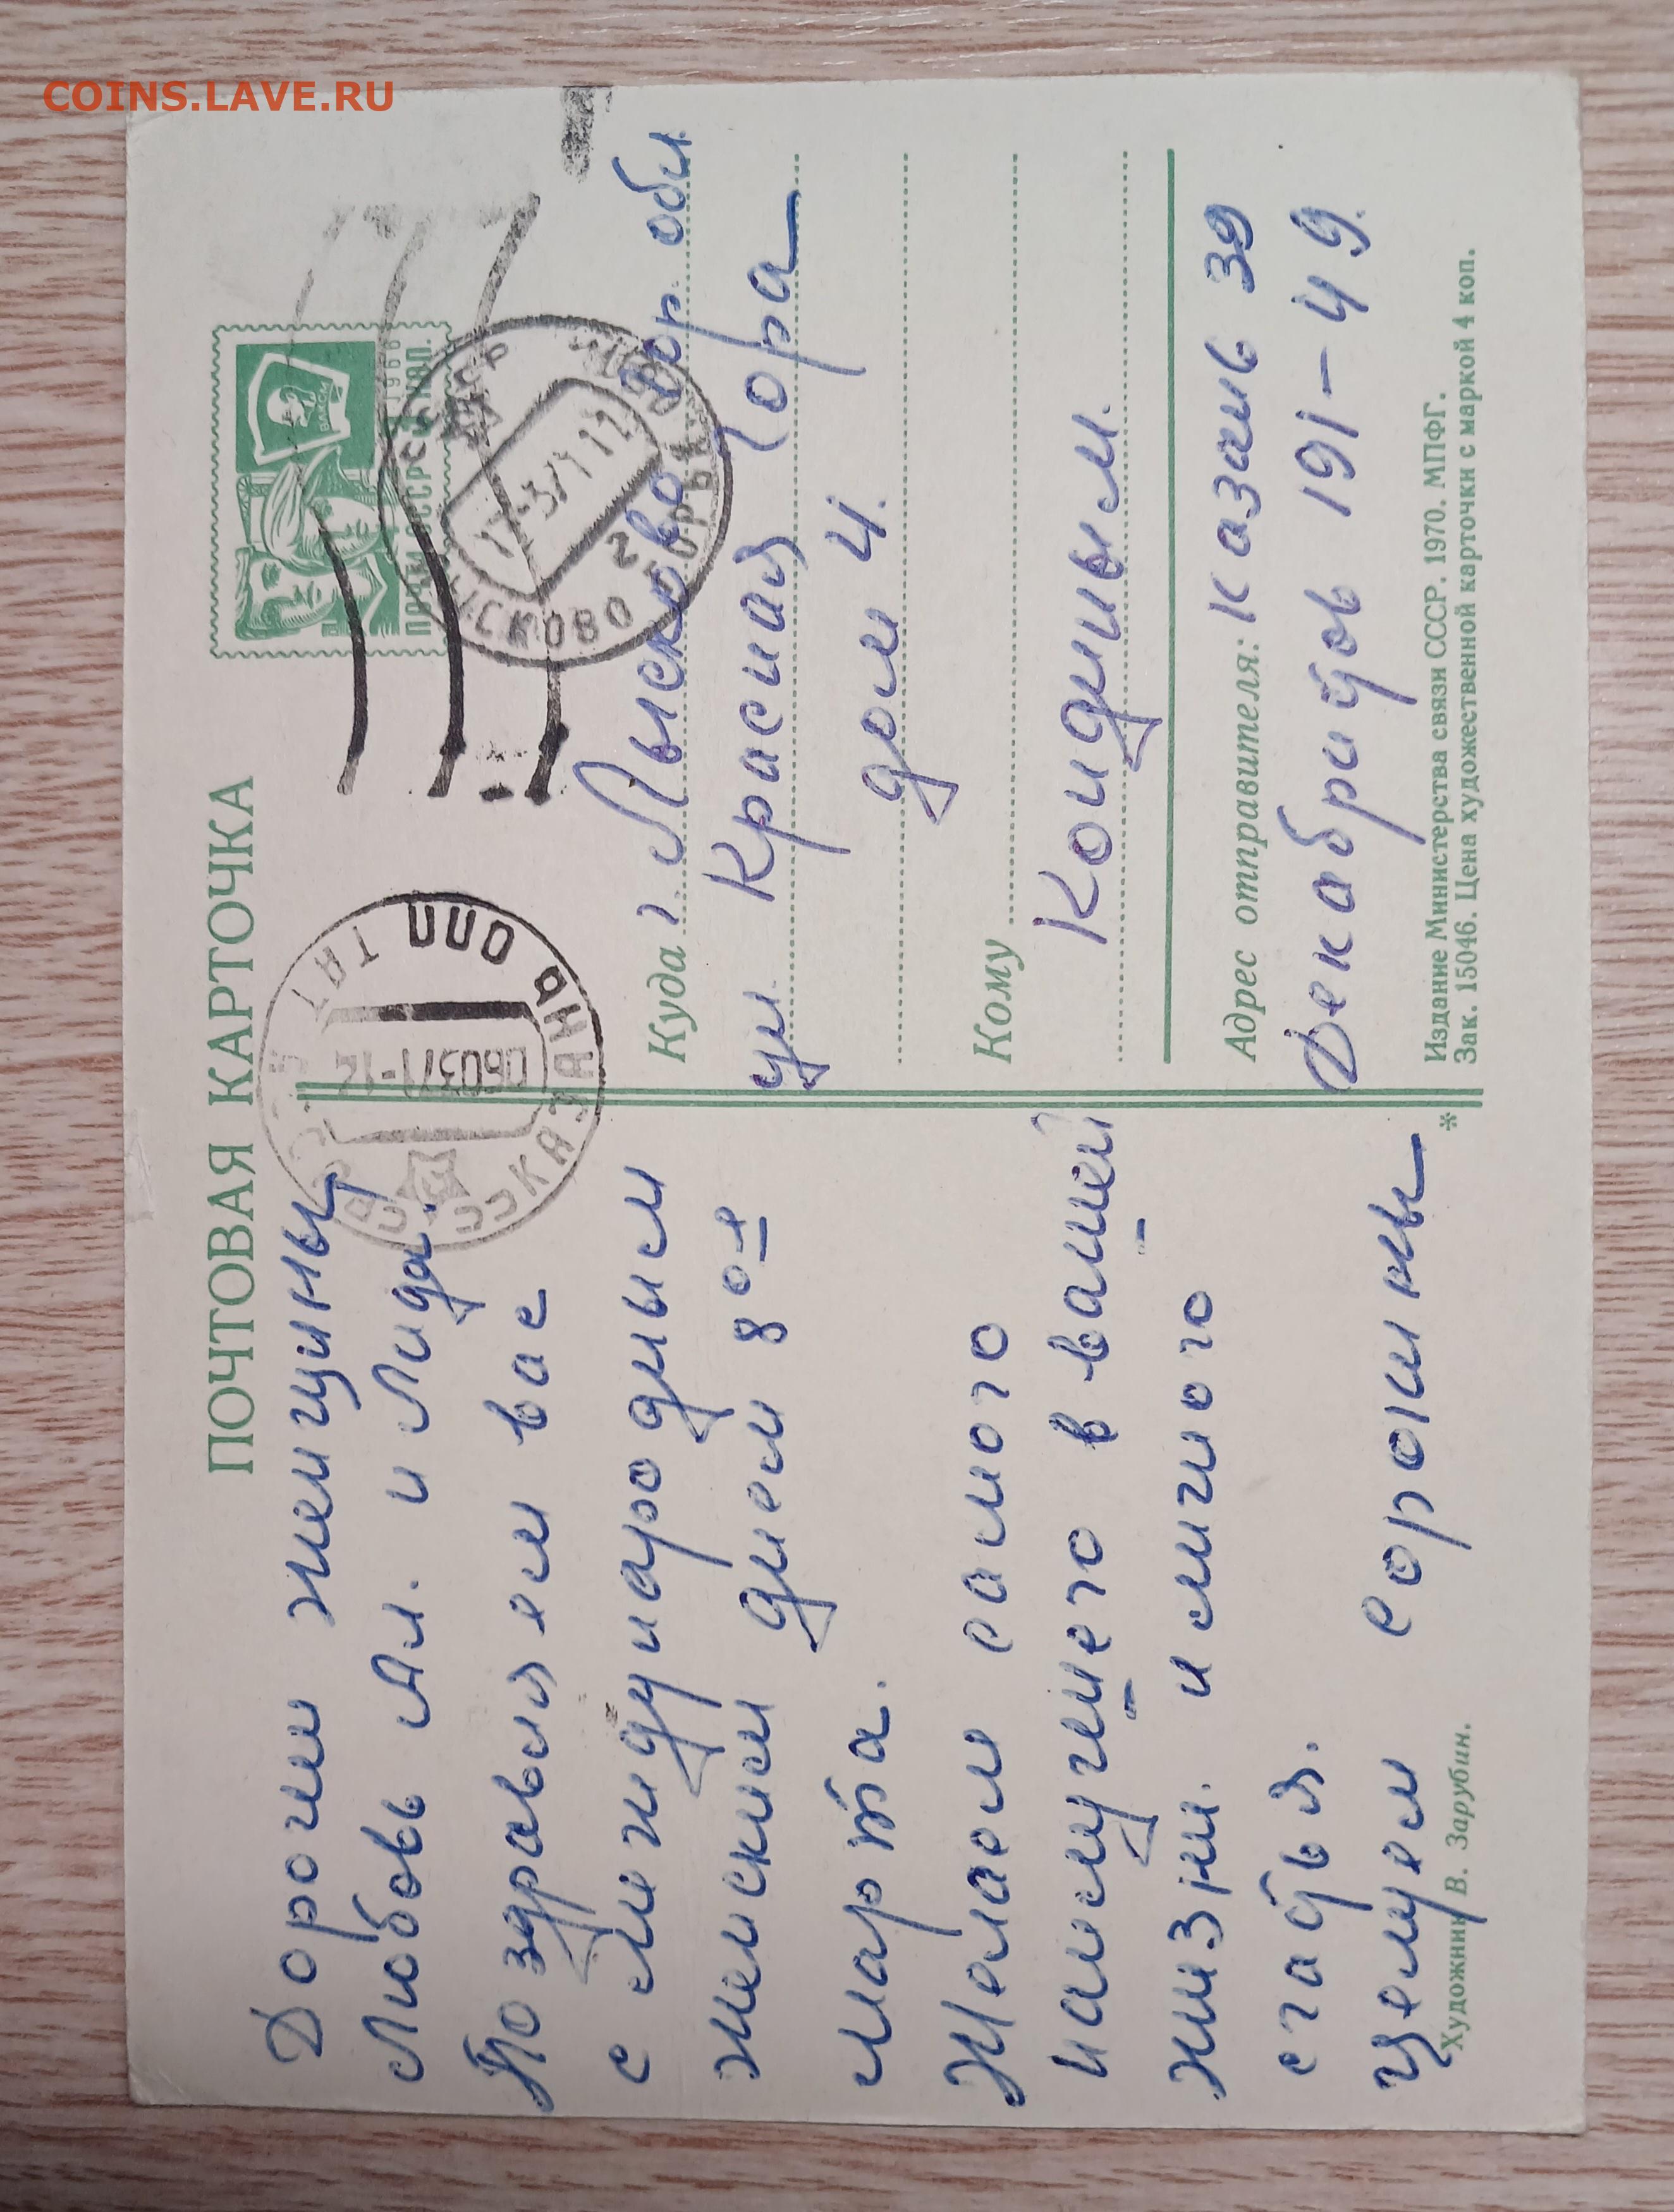 COINS.LAVE.RU
ПОЧТОВАЯ КАРТОЧКА
Дорогии женщины
Любовь Ан. и Лида.
Поздравляем вас
с международным
женским днем 8ое
марта.
Желаем самого
наилучшего в вашей
жизни. и много
счастья.
целуем сорокины
Художник В. Зарубин.
ПОЧТА СССР 1966
КОП.
КАЗАНЬ ОПП
060371-12
ЛЫСКОВО ГОРЬК
17-37111
Куда г. Лысково гор. обл.
ул. Красная гора
дом 4.
Кому
Кондиным.
Адрес отправителя: Казань 39
Декабристов 191-49.
Издание Министерства связи СССР. 1970. МПФГ.
Зак. 15046. Цена художественной карточки с маркой 4 коп.
*